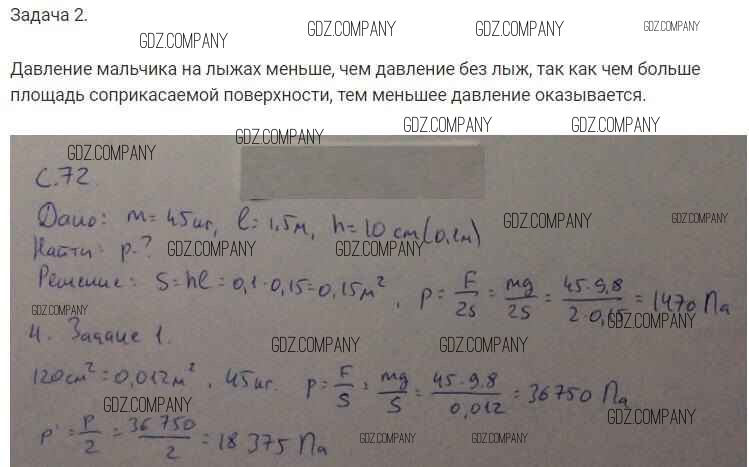 Задача 2.
GDZ.COMPANY GDZ.COMPANY GDZ.COMPANY GDZ.COMPANY
Давление мальчика на лыжах меньше, чем давление без лыж, так как чем больше
площадь соприкасаемой поверхности, тем меньшее давление оказывается.
GDZ.COMPANY GDZ.COMPANY GDZ.COMPANY GDZ.COMPANY
С.72.
Дано: m = 45кг, l = 1,5м, h = 10 см (0,1м)
GDZ.COMPANY GDZ.COMPANY
Найти: p-?
GDZ.COMPANY GDZ.COMPANY
Решение: S = hl = 0,1·0,15 = 0,15м², p = F/2S = mg/2S = 45·9,8/2·0,15 = 1470 Па
GDZ.COMPANY GDZ.COMPANY
4. Задание 1.
GDZ.COMPANY GDZ.COMPANY
120см² = 0,012м², 45кг. p = F/S = mg/S = 45·9,8/0,012 = 36750 Па
GDZ.COMPANY GDZ.COMPANY
p' = p/2 = 36 750/2 = 18 375 Па
GDZ.COMPANY GDZ.COMPANY